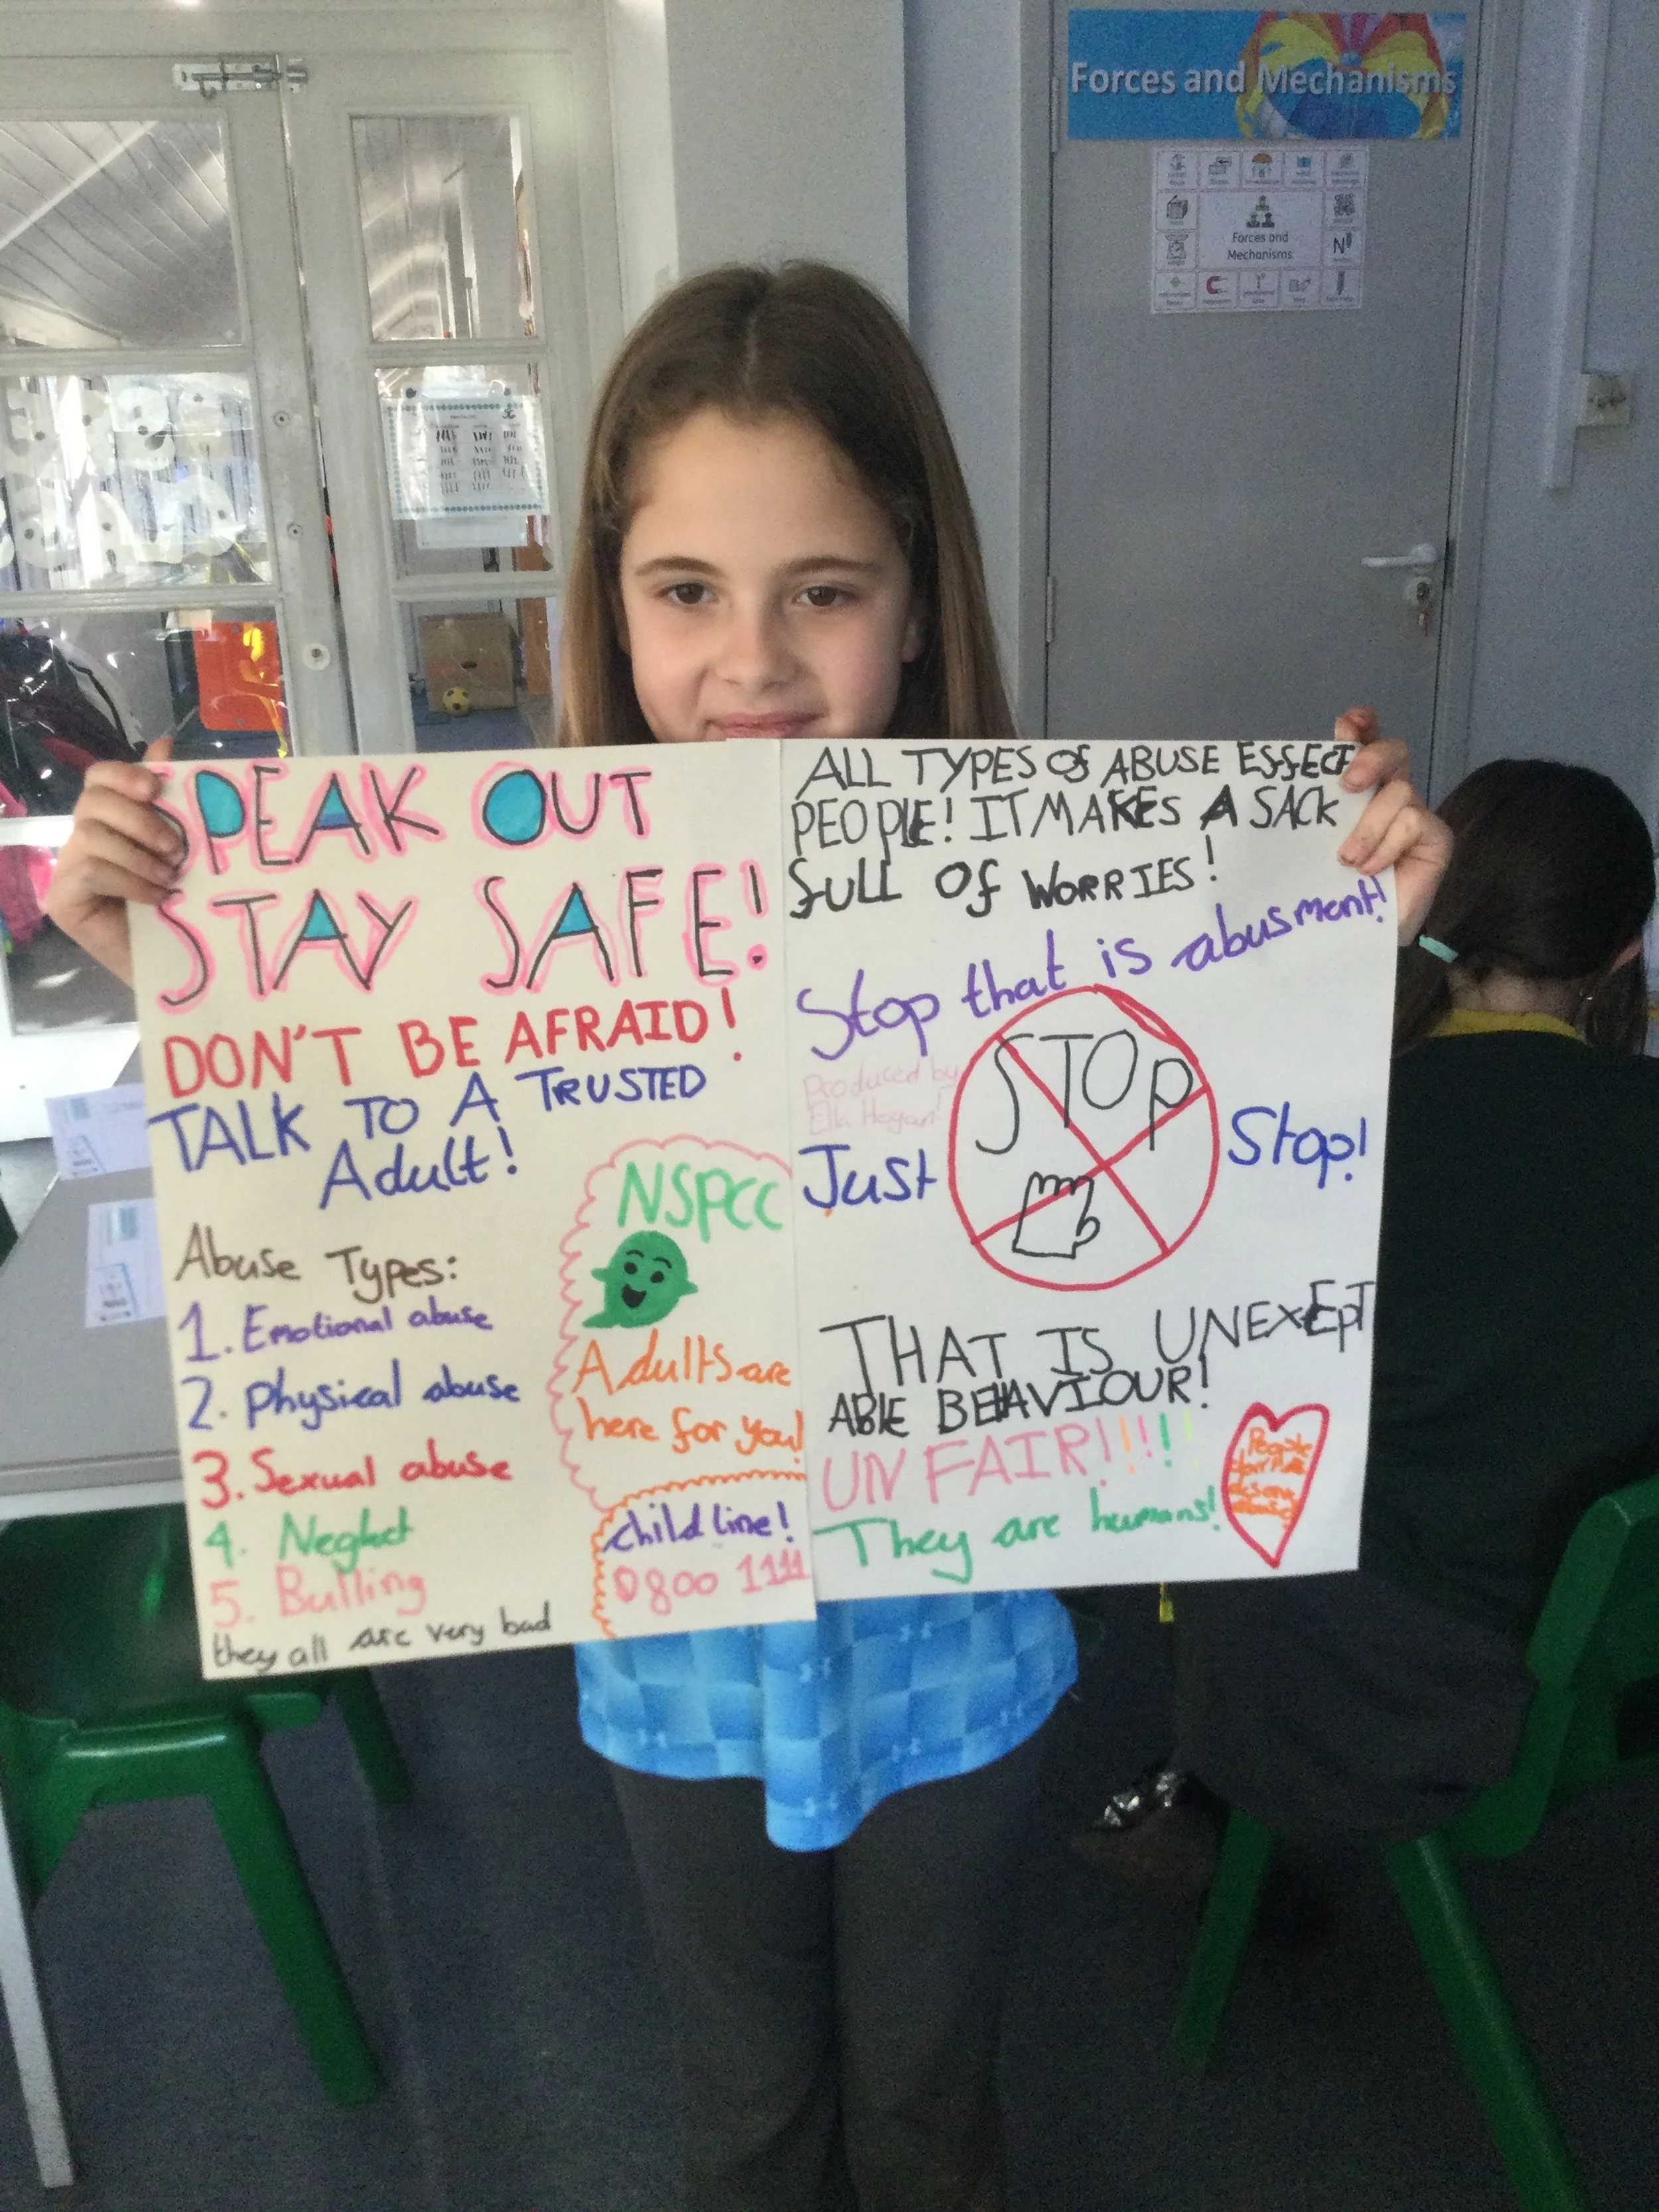 Forces and Mechanisms
Forces and
Mechanisms
N
SPEAK OUT
STAY SAFE!
DON'T BE AFRAID!
TALK TO A TRUSTED
Adult!
Abuse Types:
1. Emotional abuse
2. physical abuse
3. Sexual abuse
4. Neglect
5. Bulling
they all are very bad
NSPCC
Adults are
here for you!
child line!
0800 1111
ALL TYPES Of ABUSE EffECT
PEOPLE! IT MAKES A SACK
fULL Of WORRIES!
Stop that is abusment!
Produced by
Hogan!
STOP
Just
Stop!
THAT IS UNEXEPT
ABLE BEHAVIOUR!
UNFAIR!!!!!
They are humans!
People